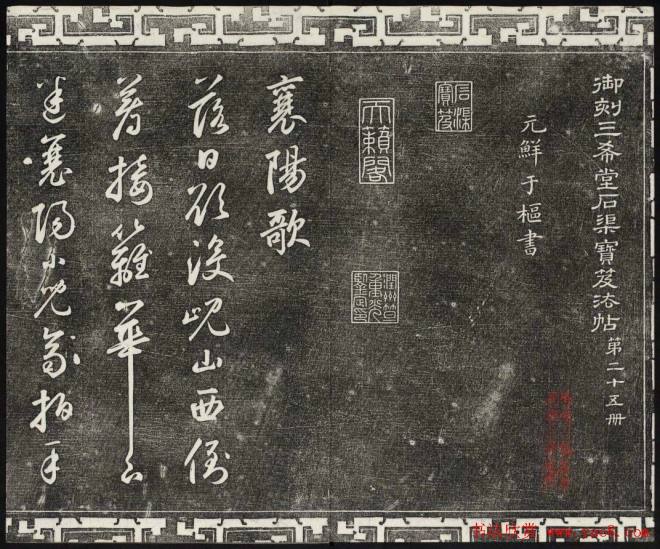 御刻三希堂石渠寶笈法帖第二十五册
元鮮于樞書
石渠寶笈
天籟閣
襄陽歌
落日欲没峴山西倒
著接䍦華下
迷襄陽小兒齊拍手